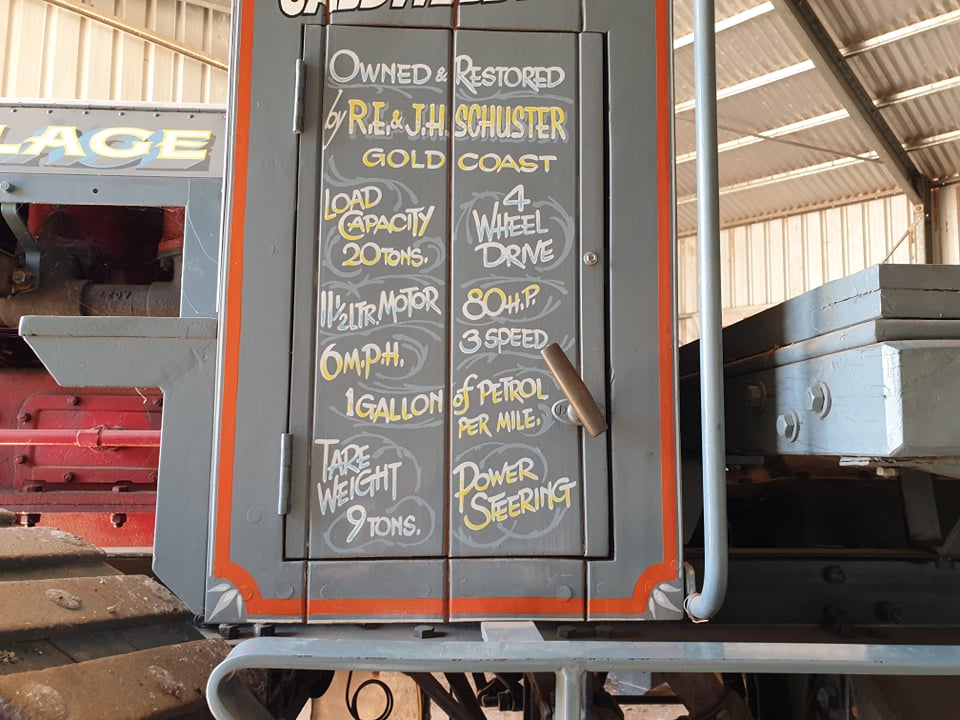 LAGE
OWNED & RESTORED
by R.E. & J.H. SCHUSTER
GOLD COAST
LOAD
CAPACITY
20 TONS.
4
WHEEL
DRIVE
11 1/2 LTR. MOTOR
80 H.P.
6 M.P.H.
3 SPEED
1 GALLON of PETROL
PER MILE.
TARE
WEIGHT
9 TONS.
POWER
STEERING